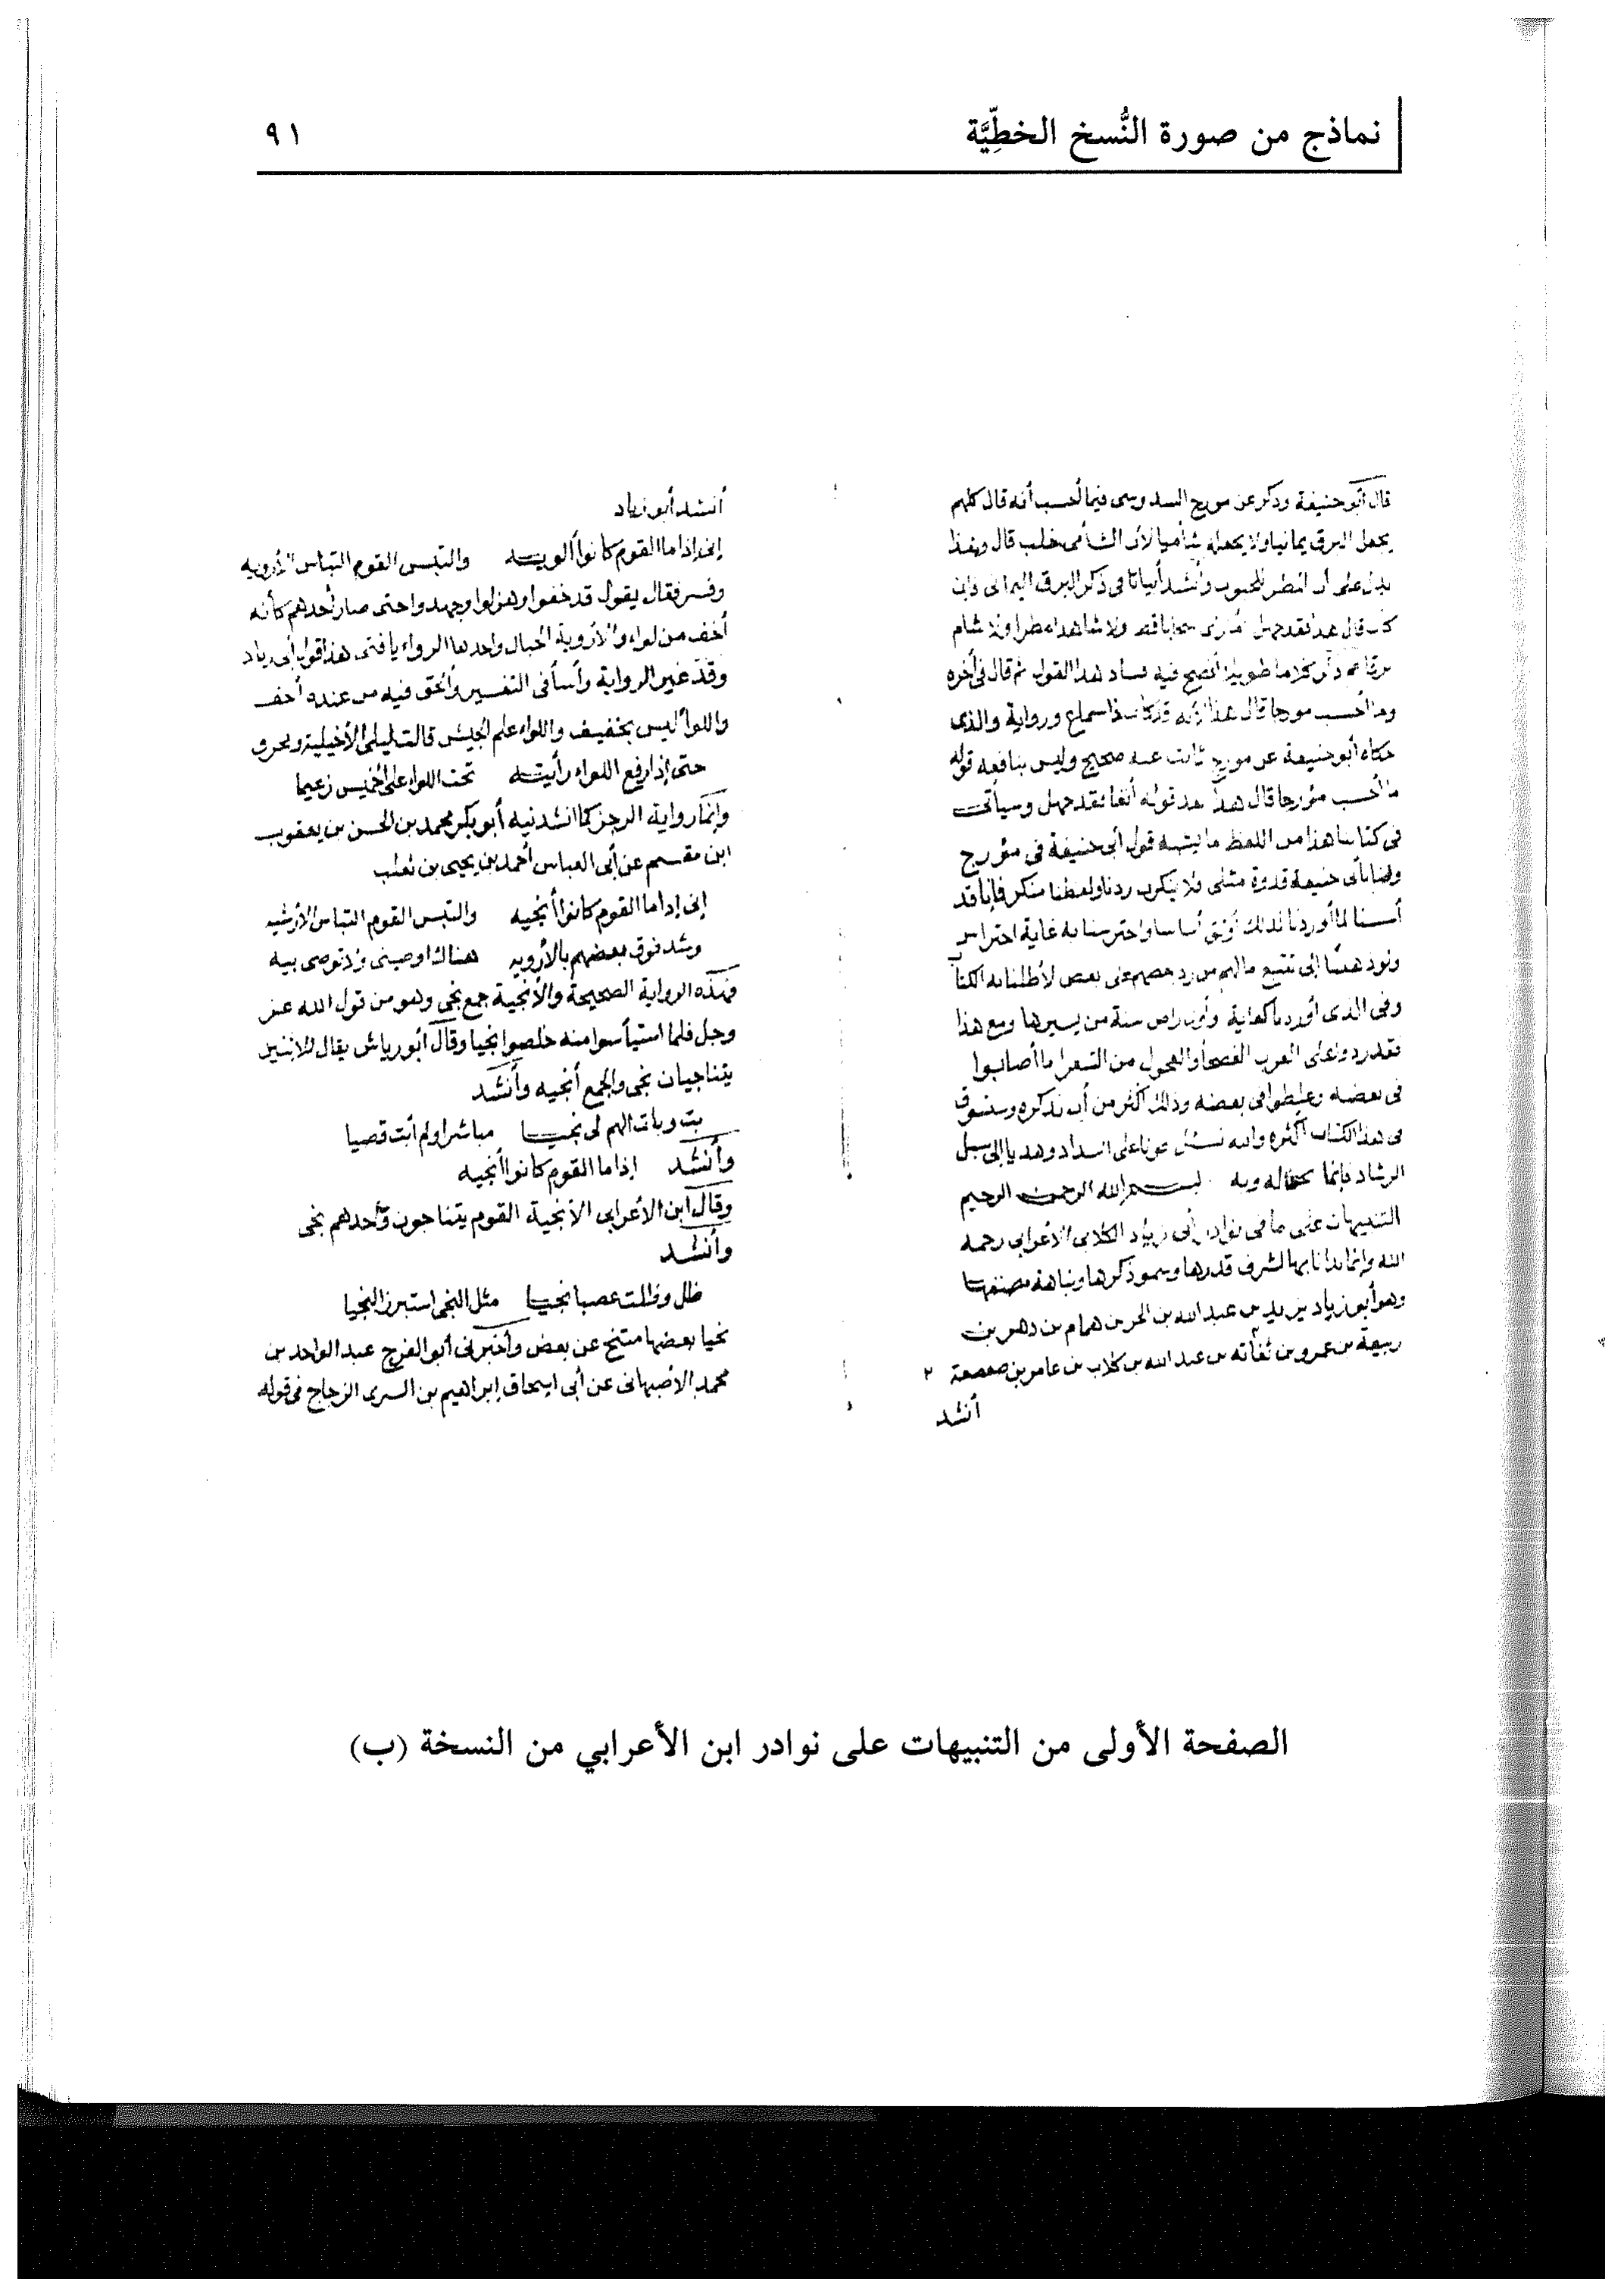 نماذج من صورة النُّسخ الخطِّيَّة
٩١
قال أبو حنيفة وذكر عن مورج السدوسى فيما أحسب أنه قال كلهم
يجعل البرق يمانيا ولا يجعله شأميا لأن الشأمى خلب قال وهذا
يدل على أن المطر للجنوب وأنشد أبياتا فى ذكر البرق اليمانى
قال هذا فقد جهل سحابا قط ولا شاهد مطرا ولا شام
برقا ثم ذكر كلاما طويلا أفصح فيه فساد هذا القول ثم قال فى آخره
وما أحسب مورجا قال هذا لأنه قد كان ذا سماع ورواية والذى
حكاه أبو حنيفة عن مورج ثابت عنه صحيح وليس بنافعه قوله
ما أحسب مؤرجا قال هذا بعد قوله أنفا فقد جهل وسيأتى
فى كتابنا هذا من اللفظ ما يشبه قول أبى حنيفة فى مؤرج
ولنا بأبى حنيفة قدوة مثلى فلا يكون ردنا ولفظنا منكر فإنا قد
أسسنا لما أوردناه لذلك أوثق أساسا واحترسنا له غاية احتراس
ولو ذهبنا إلى تتبع ما لهم من رد بعضهم على بعض لأطلنا به الكتاب
وفى الذى أوردنا كفاية من يسيرها ومع هذا
فقد ردوا على العرب الفصحا والفحول من الشعرا ما أصابوا
فى بعضه وغلطوا فى بعضه وذلك أكثر من أن نذكره وسنسوق
فى هذا الكتاب أكثره والله نسئل عونا على السداد وهديا إلى سبل
الرشاد فإنما نحن له وبه بسم الله الرحمن الرحيم
التنبيهات على ما فى نوادر أبى زياد الكلابى الأعرابى رحمه
الله وإنما بدأنا بها لشرف قدرها وسمو ذكرها ونباهة مصنفها
وهو أبو زياد يزيد بن عبد الله بن الحر بن همام بن دهر بن
ربيعة بن عمرو بن نفاثه بن عبد الله بن كلاب بن عامر بن صعصعة ٢
أنشد
أنشد أبو زياد
إنى إذا ما القوم كانوا ألويه والتبس القوم التباس الأرويه
وفسر فقال يقول قد خفوا وهزلوا وجهدوا حتى صار أحدهم كأنه
أخف من لواء والأروية الحبال واحدها الرواء يا فتى هذا قول أبى زياد
وقد غير الرواية وأسأ فى التفسير وألحق فيه من عنده أخف
واللوأ ليس بخفيف واللواء علم الجيش قالت ليلى الأخيلية
حتى إذا رفع اللواء رأيته تحت اللواء على الخميس زعيما
وإنما رواية الرجز كما أنشدنيه أبو بكر محمد بن الحسن بن يعقوب
ابن مقسم عن أبى العباس أحمد بن يحيى بن ثعلب
إنى إذا ما القوم كانوا أنجيه والتبس القوم التباس الأرشيه
وشد فوق بعضهم بالأرويه هناك أوصينى ولا توصى بيه
فهذه الرواية الصحيحة والأنجية جمع نجى وهو من قول الله عز
وجل فلما استيأسوا منه خلصوا نجيا وقال أبو رياش يقال للاثنين
يتناجيان نجى والجمع أنجيه وأنشد
بت وبات الهم لى نجيا مباشرا ولم أبت قصيا
وأنشد إذا ما القوم كانوا أنجيه
وقال ابن الأعرابى الأنجية القوم يتناجون وأحدهم نجى
وأنشد
ظل وظلت عصبا نجيا مثل النجى استبرز النجيا
نحيا بعضها متنح عن بعض وأخبرنى أبو الفرج عبد الواحد بن
محمد الأصبهانى عن أبى إسحاق إبراهيم بن السرى الزجاج فى قوله
الصفحة الأولى من التنبيهات على نوادر ابن الأعرابي من النسخة (ب)